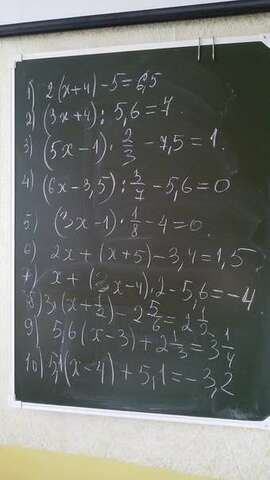 1) 2(x+4)-5=6,5
2) (3x+4):5,6=7.
3) (5x-1)·2/3-7,5=1.
4) (6x-3,5):3/7-5,6=0
5) (3x-1)·1/8-4=0.
6) 2x+(x+5)-3,4=1,5
7) x+(3x-4)·2-5,6=-4
8) 3(x+1/2)-2 5/6=2 1/3
9) 5,6(x-3)+2 1/3=3 1/4
10) 5,1(x-4)+5,1=-3,2